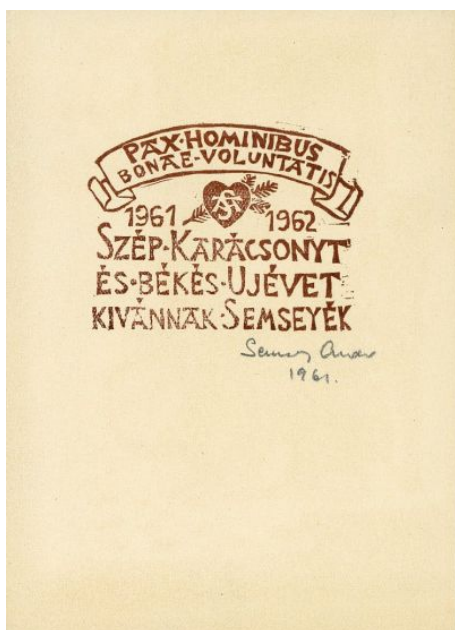 PAX·HOMINIBUS
BONAE-VOLUNTATIS
1961 1962
SZÉP·KARÁCSONYT
ÉS·BÉKÉS·UJÉVET
KIVÁNNAK·SEMSEYÉK
Semsey Andor
1961.